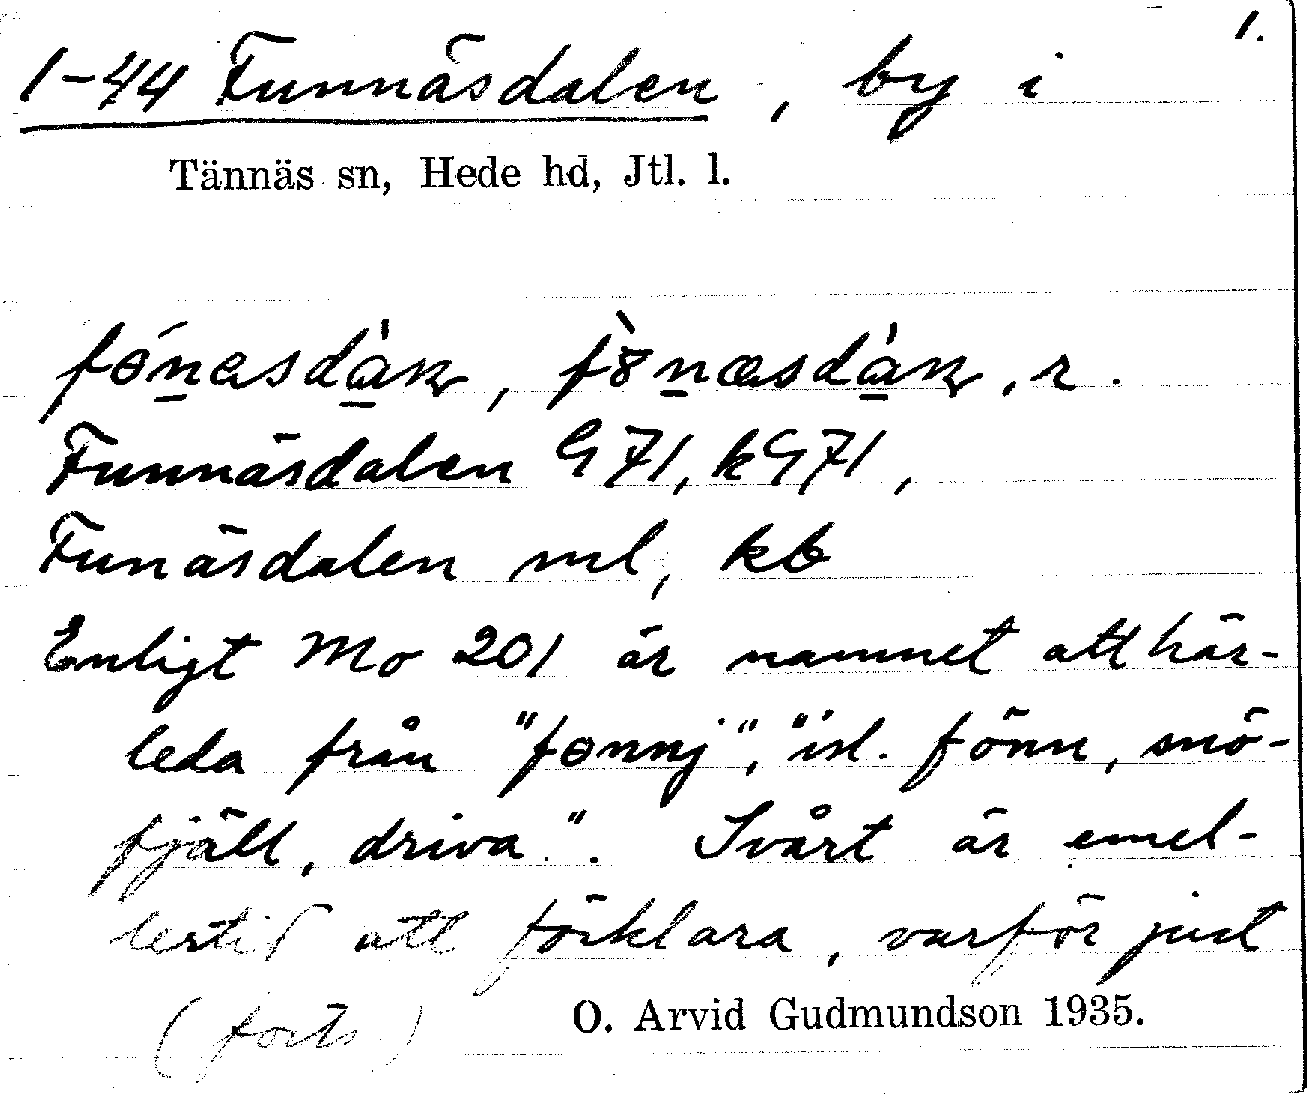 1.
1-44 Funnäsdalen, by i
Tännäs sn, Hede hd, Jtl. l.
Funnäsdalen G71, kG71,
Funäsdalen ml, kb
Enligt Mo 201 är namnet att här-
leda från "fonnj", "isl. fönn, snö-
fjäll, driva". Svårt är emel-
lertid att förklara, varför just
(forts)
O. Arvid Gudmundson 1935.